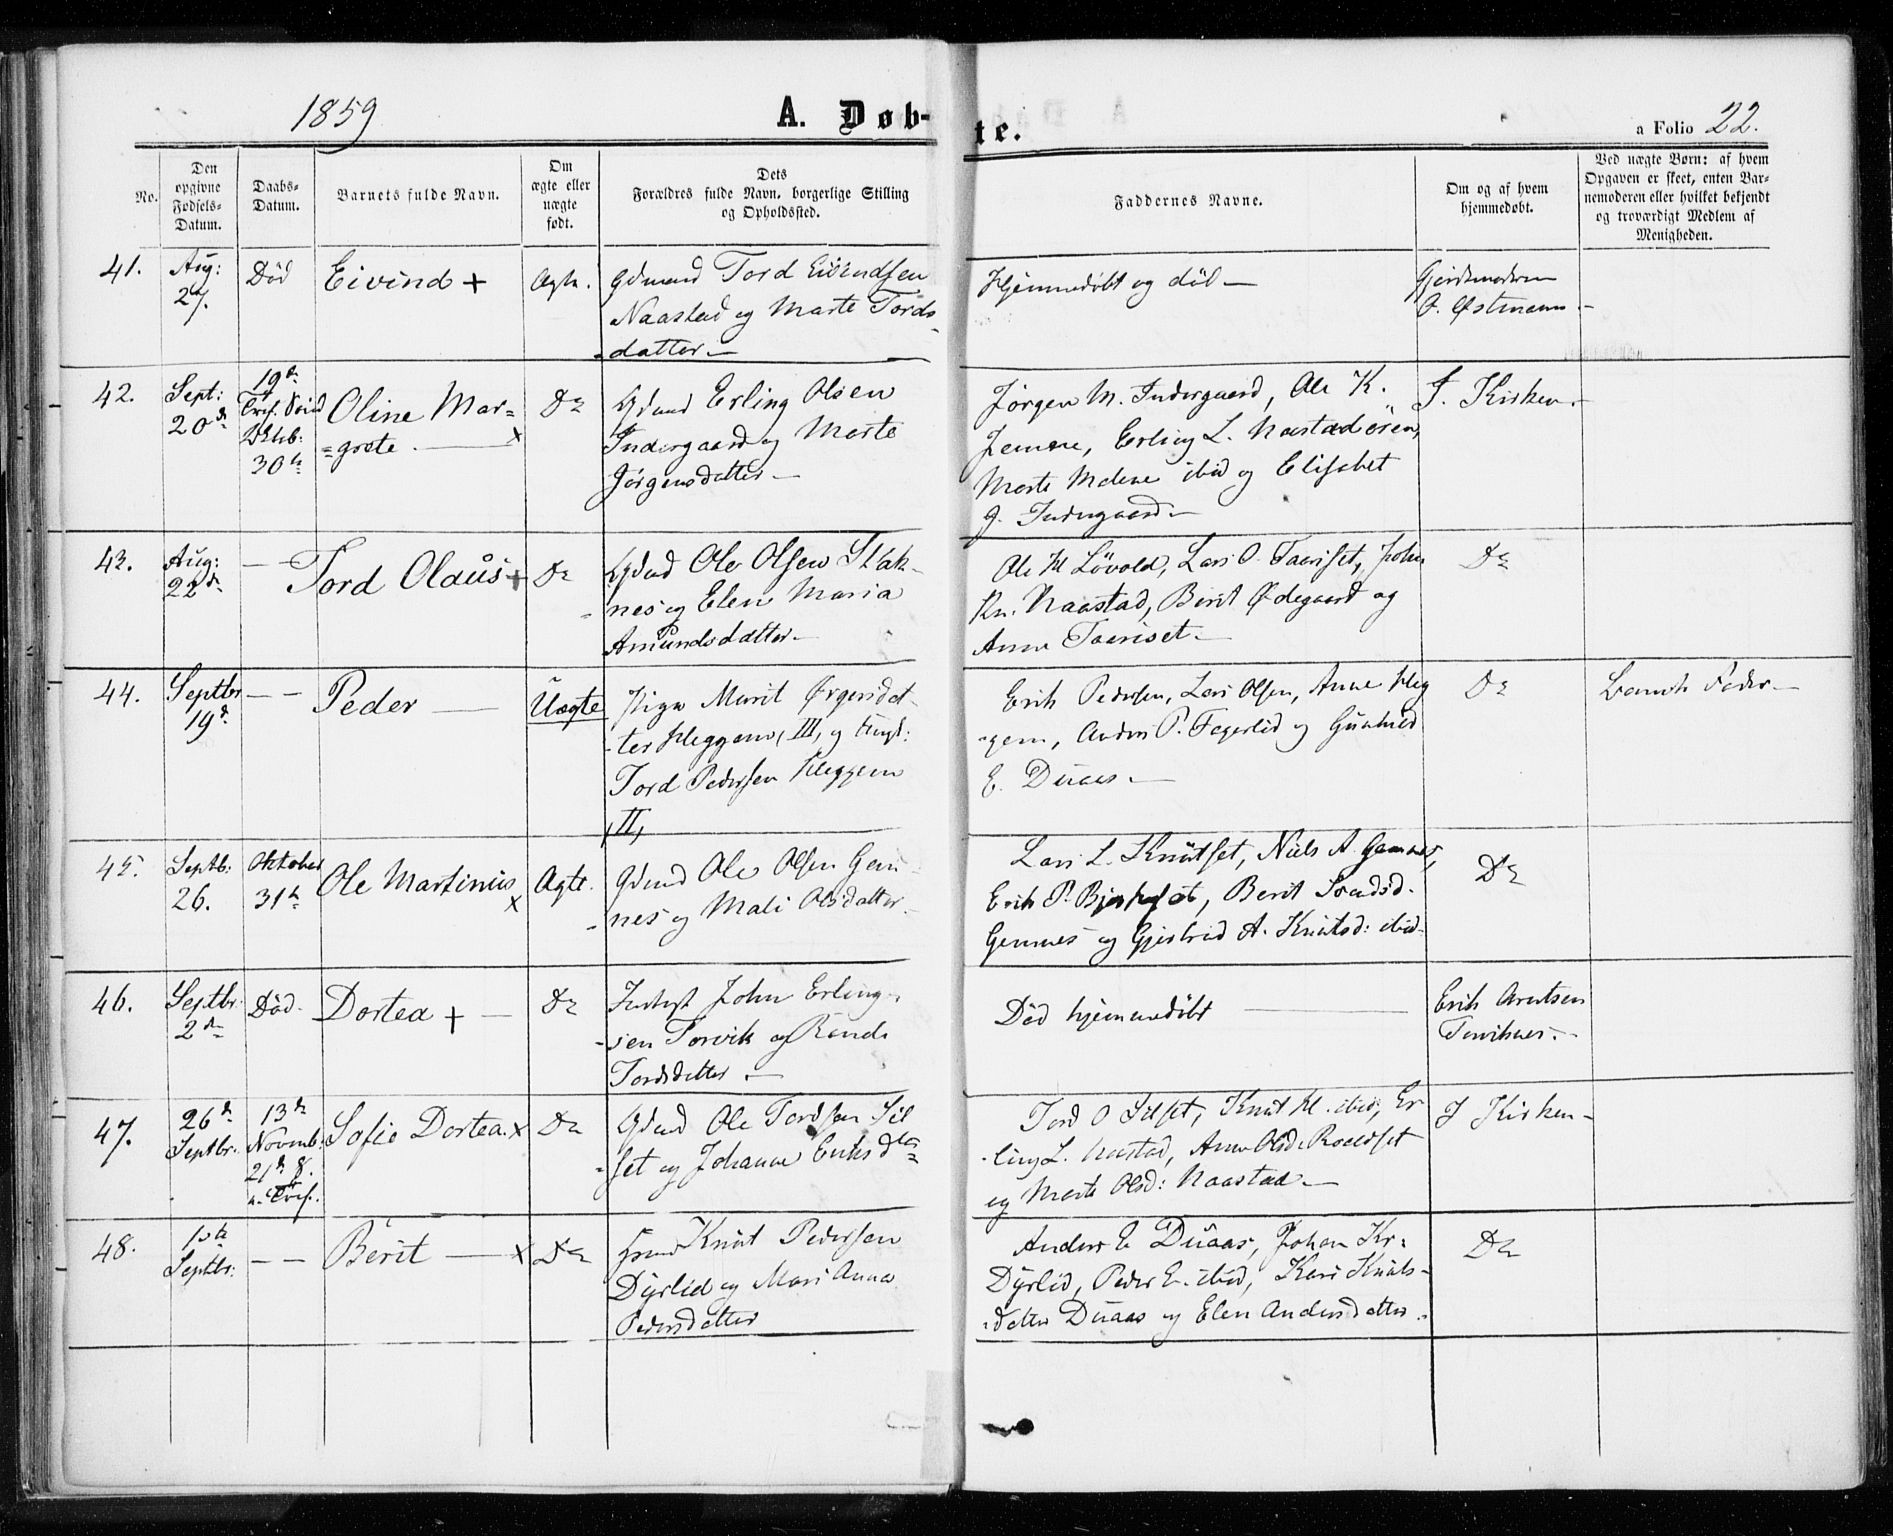 1859
A. Døb-
te.
a Folio 22.
No.
Den
opgivne
Fødsels-
Datum.
Daabs-
Datum.
Barnets fulde Navn.
Om
ægte eller
uægte
født.
Dets
Forældres fulde Navn, borgerlige Stilling
og Opholdssted.
Faddernes Navne.
Om og af hvem
hjemmedøbt.
Ved uægte Børn: af hvem
Opgaven er skeet, enten Bar-
nemoderen eller hvilket bekjendt
og troværdigt Medlem af
Menigheden.
41.
Aug:
27.
Død
Eivind +
Ægte.
Gdmand Tord Eivindsen
Naastad og Marte Tords-
datter —
Hjemmedøbt og död —
Gjordemoderen
Østmann —
42.
Sept:
20de
19de
Tref.
30te
Oline Mar=
=grete. — x
Do
Gdmd Erling Olsen
Indergaard og Marte
Jörgensdatter —
Jörgen M. Indergaard, Ole K.
Erling L. Naastadören,
Marte Malene ibid og Elisabet
J. Indergaard —
I. Kirken —
43.
Aug:
22de
—
Tord Olaus +
Do
Gdmd Ole Olsen Stak-
-nes og Elen Maria
Amundsdatter —
Ole Kl Lövold, Lars O. Taariset, John
Kn. Naastad, Berit Ødegaard og
Anne Taariset —
Do
44.
Septbr
19de
— —
Peder —
Uægte
Pige Marit Ørgersdat-
-ter Kleggen, (III, og Ungk:
Tord Pedersen Kleggen
(II,
Erik Pedersen, Lars Olsen, Anne Kleg
-gen, Anders P. Fagerlid og Gunhild
E. Duaas —
Do
Barnets Fader —
45.
Septb:
26.
Oktober
31te
Ole Martinus x
Ægte.
Gdmd Ole Olsen Gem-
-nes og Mali Olsdatter —
Lars L. Knutset, Niels A. Gemnes,
Erik P. Berit
Gemnes og Gjertrud A. Knutsd: ibid —
Do
46.
Septbr.
2den
Död.
Dortea + —
Do
Inderst John Erling-
-sen Torvik og Rande
Tordsdatter —
Död hjemmedöbt —
Erik Arntsen
Torviknes —
47.
26de
Septbr.
13de
Novemb:
21de S.
e. Tref.
Sofie Dortea. x
Do
Gdmd Ole Tordsen Sil
-set og Johanne Eriksdtr
Tord O Silset, Knut Kl. ibid, Er
-ling L. Naastad, Anne Olsd: Roaldset
og Marte Olsd: Naastad —
I Kirken —
48.
10de
Septbr:
— —
Berit — x
Do
Knut Pedersen
Dyrlid og Mari Anna
Pedersdatter
Anders E Duaas, Johan Kr.
Dyrlid, Peder E. ibid, Kari Knuts-
-datter Duaas og Elen Andersdatter.
Do